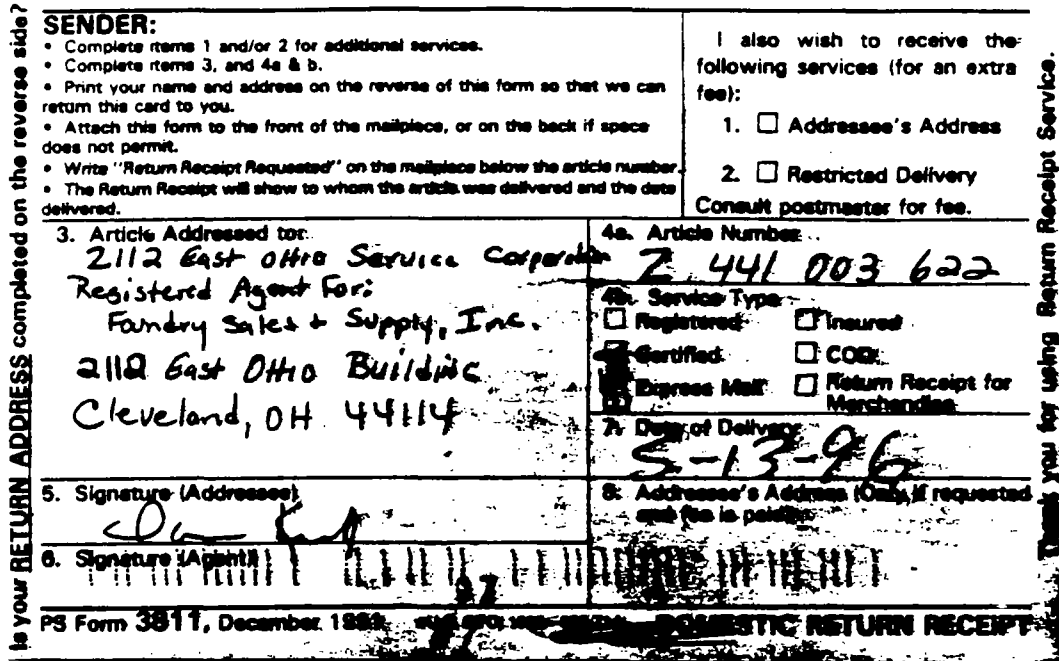 Is your RETURN ADDRESS completed on the reverse side?
SENDER:
• Complete items 1 and/or 2 for additional services.
• Complete items 3, and 4a & b.
• Print your name and address on the reverse of this form so that we can
return this card to you.
• Attach this form to the front of the mailpiece, or on the back if space
does not permit.
• Write "Return Receipt Requested" on the mailpiece below the article number
• The Return Receipt will show to whom the article was delivered and the date
delivered.
I also wish to receive the
following services (for an extra
fee):
1. ☐ Addressee's Address
2. ☐ Restricted Delivery
Consult postmaster for fee.
3. Article Addressed to:
2112 East Ohio Service Corporation
Registered Agent For:
Foundry Sales + Supply, Inc.
2112 East Ohio Building
Cleveland, OH 44114
4a. Article Number
Z 441 003 622
4b. Service Type
☐ Registered ☐ Insured
Certified ☐ COD
Express Mail ☐ Return Receipt for
Merchandise
7. Date of Delivery
5-13-96
5. Signature (Addressee)
8. Addressee's Address (Only if requested
and fee is paid)
6. Signature (Agent)
PS Form 3811, December
DOMESTIC RETURN RECEIPT
Thank you for using Return Receipt Service.